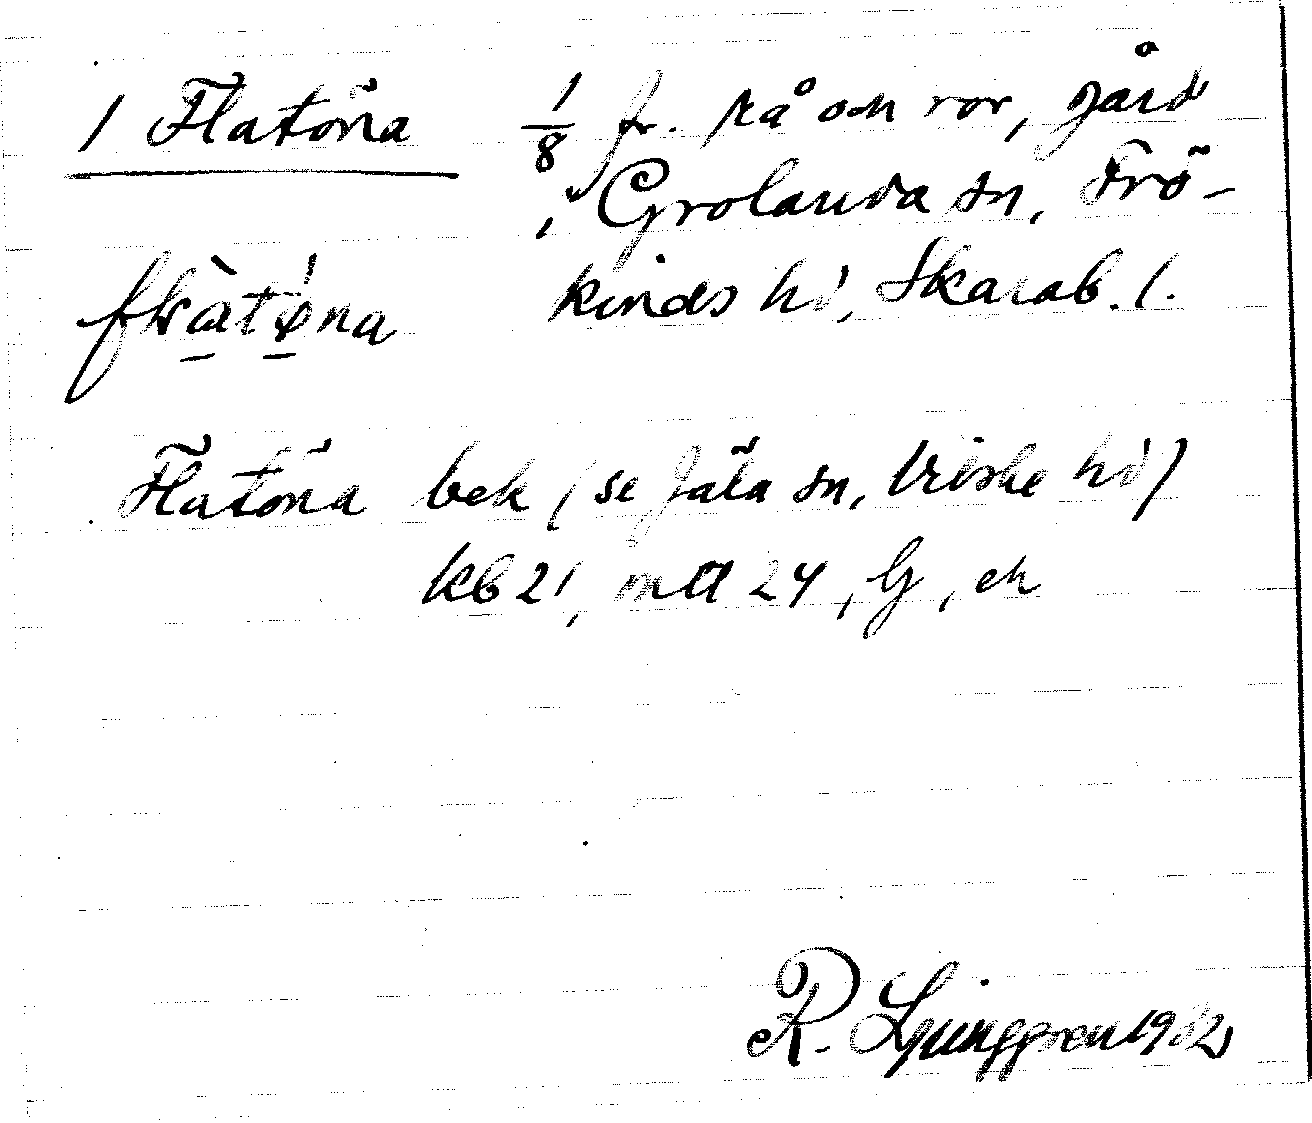 1 Flatöna 1/8 fr. rå och rör, gård
i Grolanda sn, Frö-
kinds hd, Skarab. l.
Flatöna bek (se Jäla sn, Vilske hd)
kb 21, mtl 24, lj, ek
R. Ljunggren 1952